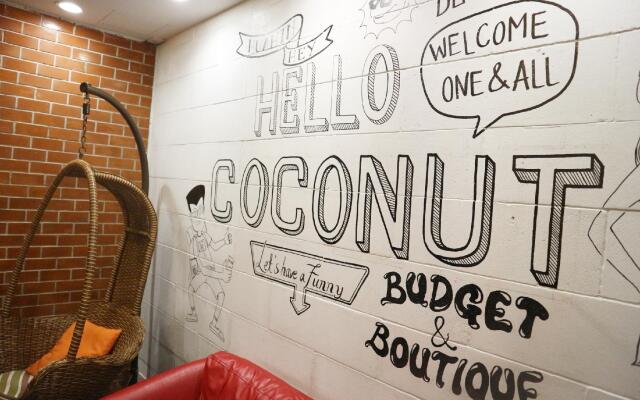 HELLO
WELCOME
ONE & ALL
COCONUT
Let's have a Funny
BUDGET
&
BOUTIQUE